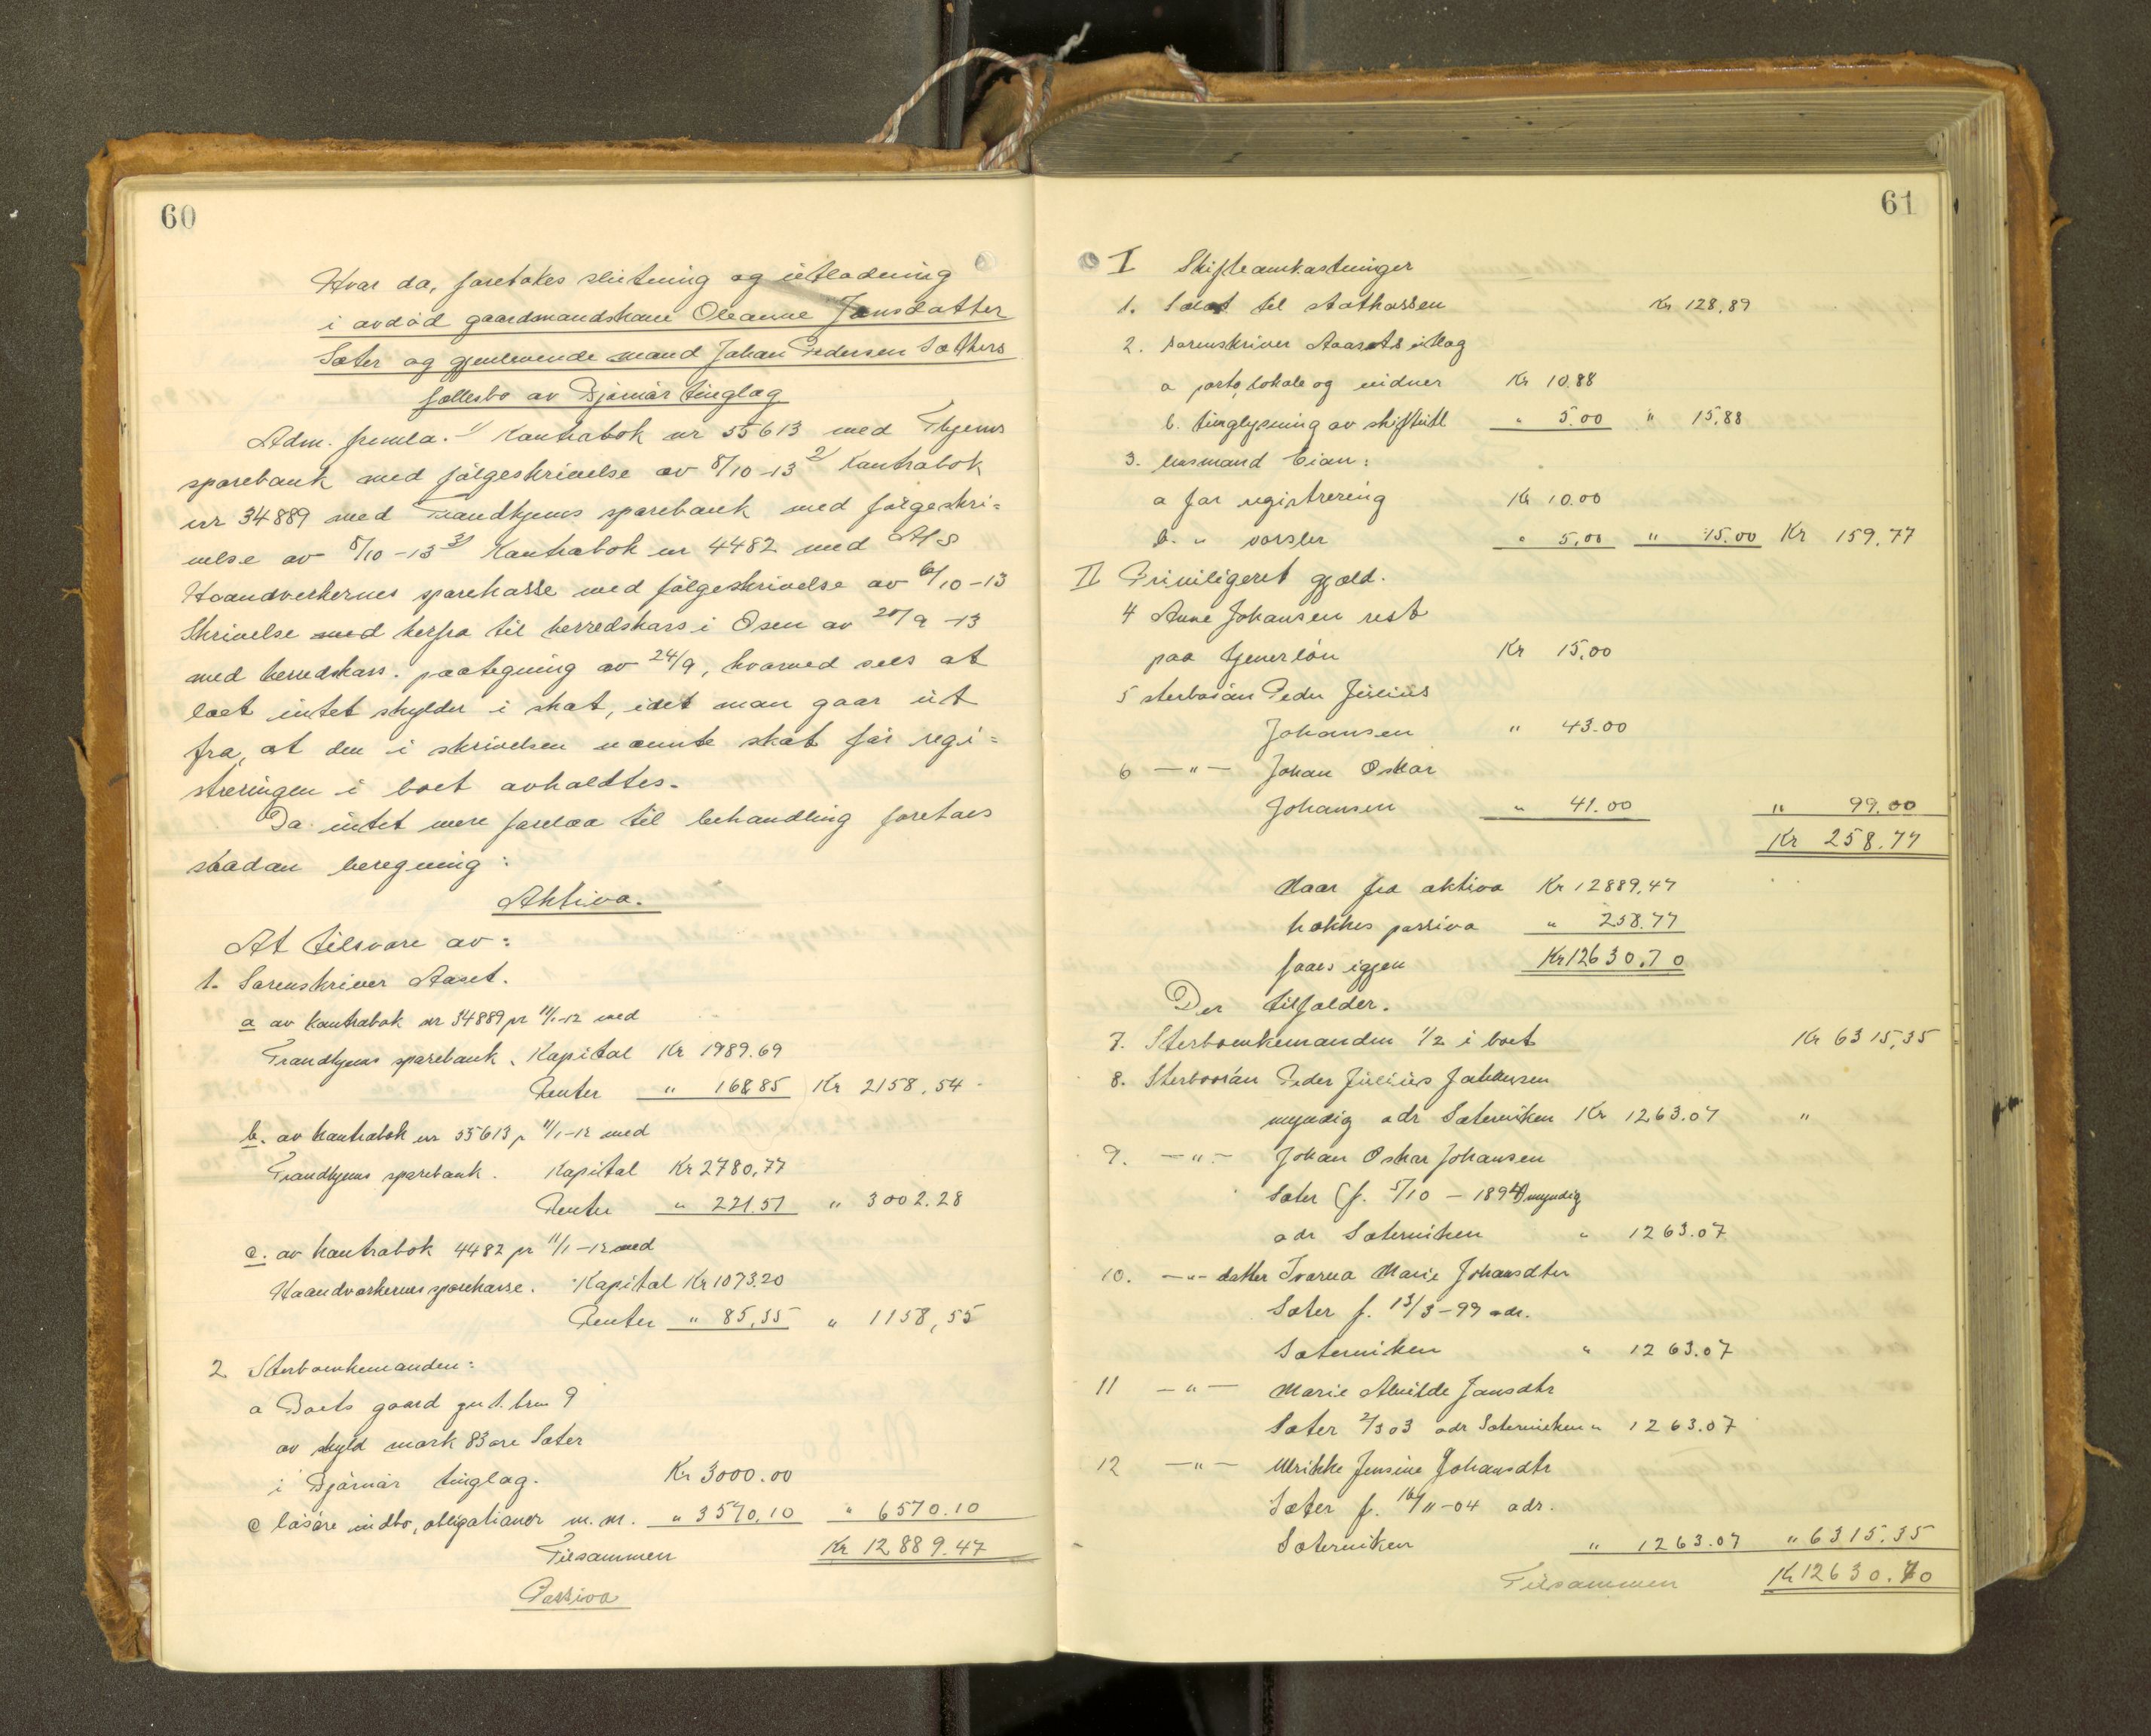 60
Hvar da, foretokes slutning og utlodning
i avdöd gaardmandskone Oleanne Jonsdatter
Sæter og gjenlevende mand Johan Pedersen Sæthers
fællesbo av Bjørnör tinglag
Adm. fremla. 1) Kontrabok nr 55613 med Thjems
sparebank med fölgeskrivelse av 8/10-13 2) Kontrabok
nr 34889 med Trondhjems sparebank med fölgeskri=
velse av 8/10-13 3) Kontrabok nr 4482 med A/S
Haandverkernes sparekasse med fölgeskrivelse av 6/10-13
Skrivelse med herfra til herredskass i Osen av 20/9 -13
med herredskass. paategning av 24/9, hvorved sees at
boet intet skylder i skat, idet man gaar ut
fra, at den i skrivelsen nævnte skat för regi=
streringen i boet avholdtes.
Da intet mere forelaa til behandling foretoes
saadan beregning:
Aktiva.
At tilsvare av:
1. Sorenskriver Aaset.
a av kontrabok nr 34889 pr 11/1-12 med
Trondhjems sparebank. Kapital Kr 1989.69
Renter " 168.85 Kr 2158,54
b. av kontrabok nr 55613 pr 11/1-12 med
Trondhjems sparebank. Kapital Kr 2780,77
Renter " 221.51 " 3002.28
c. av kontrabok 4482 pr 11/1-12 med
Haandverkernes sparekasse. Kapital Kr 1073.20
Renter " 85,35 " 1158,55
2 Sterboenkemanden:
a Boets gaard gn 1. brn 9
av skyld mark 83 öre Sæter
i Bjørnör tinglag. Kr 3000.00
c lösöre indbo, obligationer m. m. " 3570,10 " 6570.10
Tilsammen Kr 12889.47
Passiva
61
I Skifteomkostninger
1. Salæt til statkassen Kr 128,89
2. sorenskriver Aasets utlæg
a porto, lokale og vidner Kr 10.88
b. tinglysning av skifteutl " 5.00 " 15,88
3. lensmand Eian:
a for registrering Kr 10.00
b. " varsler " 5,00 " 15.00 Kr 159.77
II Priviligeret gjæld.
4 Anne Johansen rest
paa tjenerlön Kr 15,00
5 sterbosön Peder Julius
Johansen " 43.00
6 —"— Johan Oskar
Johansen " 41.00 " 99.00
Kr 258,77
Naar fra aktiva Kr 12889,47
trækkes passiva " 258.77
faaes igjen Kr 12630.70
Der tilfalder.
7. Sterboenkemanden 1/2 i boet Kr 6315,35
8. Sterbosön Peder Julius Johansen
myndig adr Sæterviken Kr 1263.07 "
9. —"— Johan Oskar Johansen
Sæter (f. 5/10 - 1894) myndig
adr Sæterviken " 1263.07
10. —"— datter Ivarna Marie Johansdtr
Sæter f. 13/3-99 adr.
Sæterviken " 1263.07
11 —"— Marie Alvilde Jonsdtr
Sæter 2/3 03 adr Sæterviken " 1263.07
12 —"— Ulrikke Jensine Johansdtr
Sæter f. 16/11-04 adr.
Sæterviken " 1263.07 " 6315.35
Tilsammen Kr 12630.70